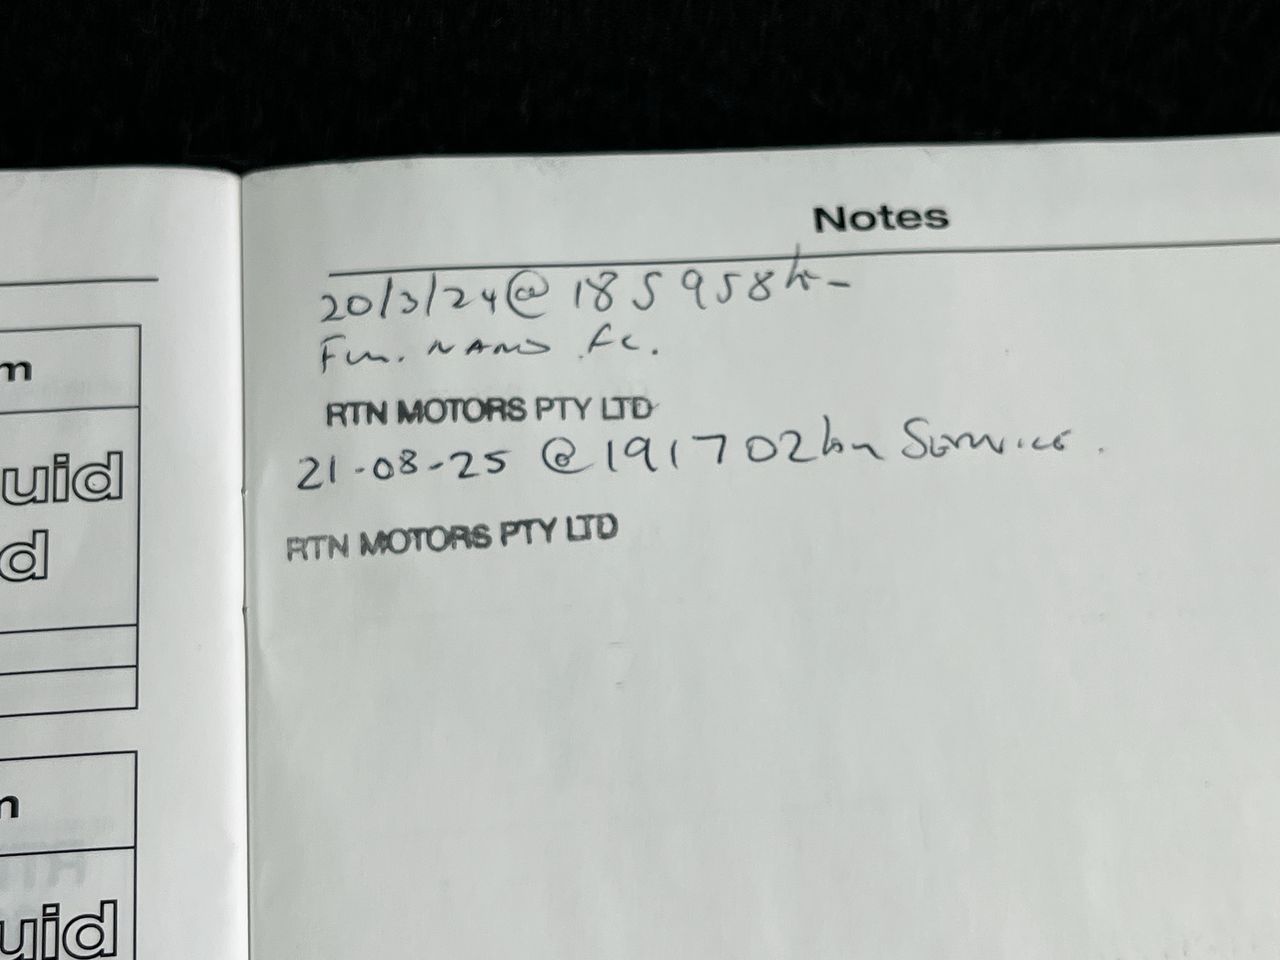 Notes
20/3/24 @ 185958km
RTN MOTORS PTY LTD
21-08-25 @ 191702km Service.
RTN MOTORS PTY LTD
m
uid
d
uid